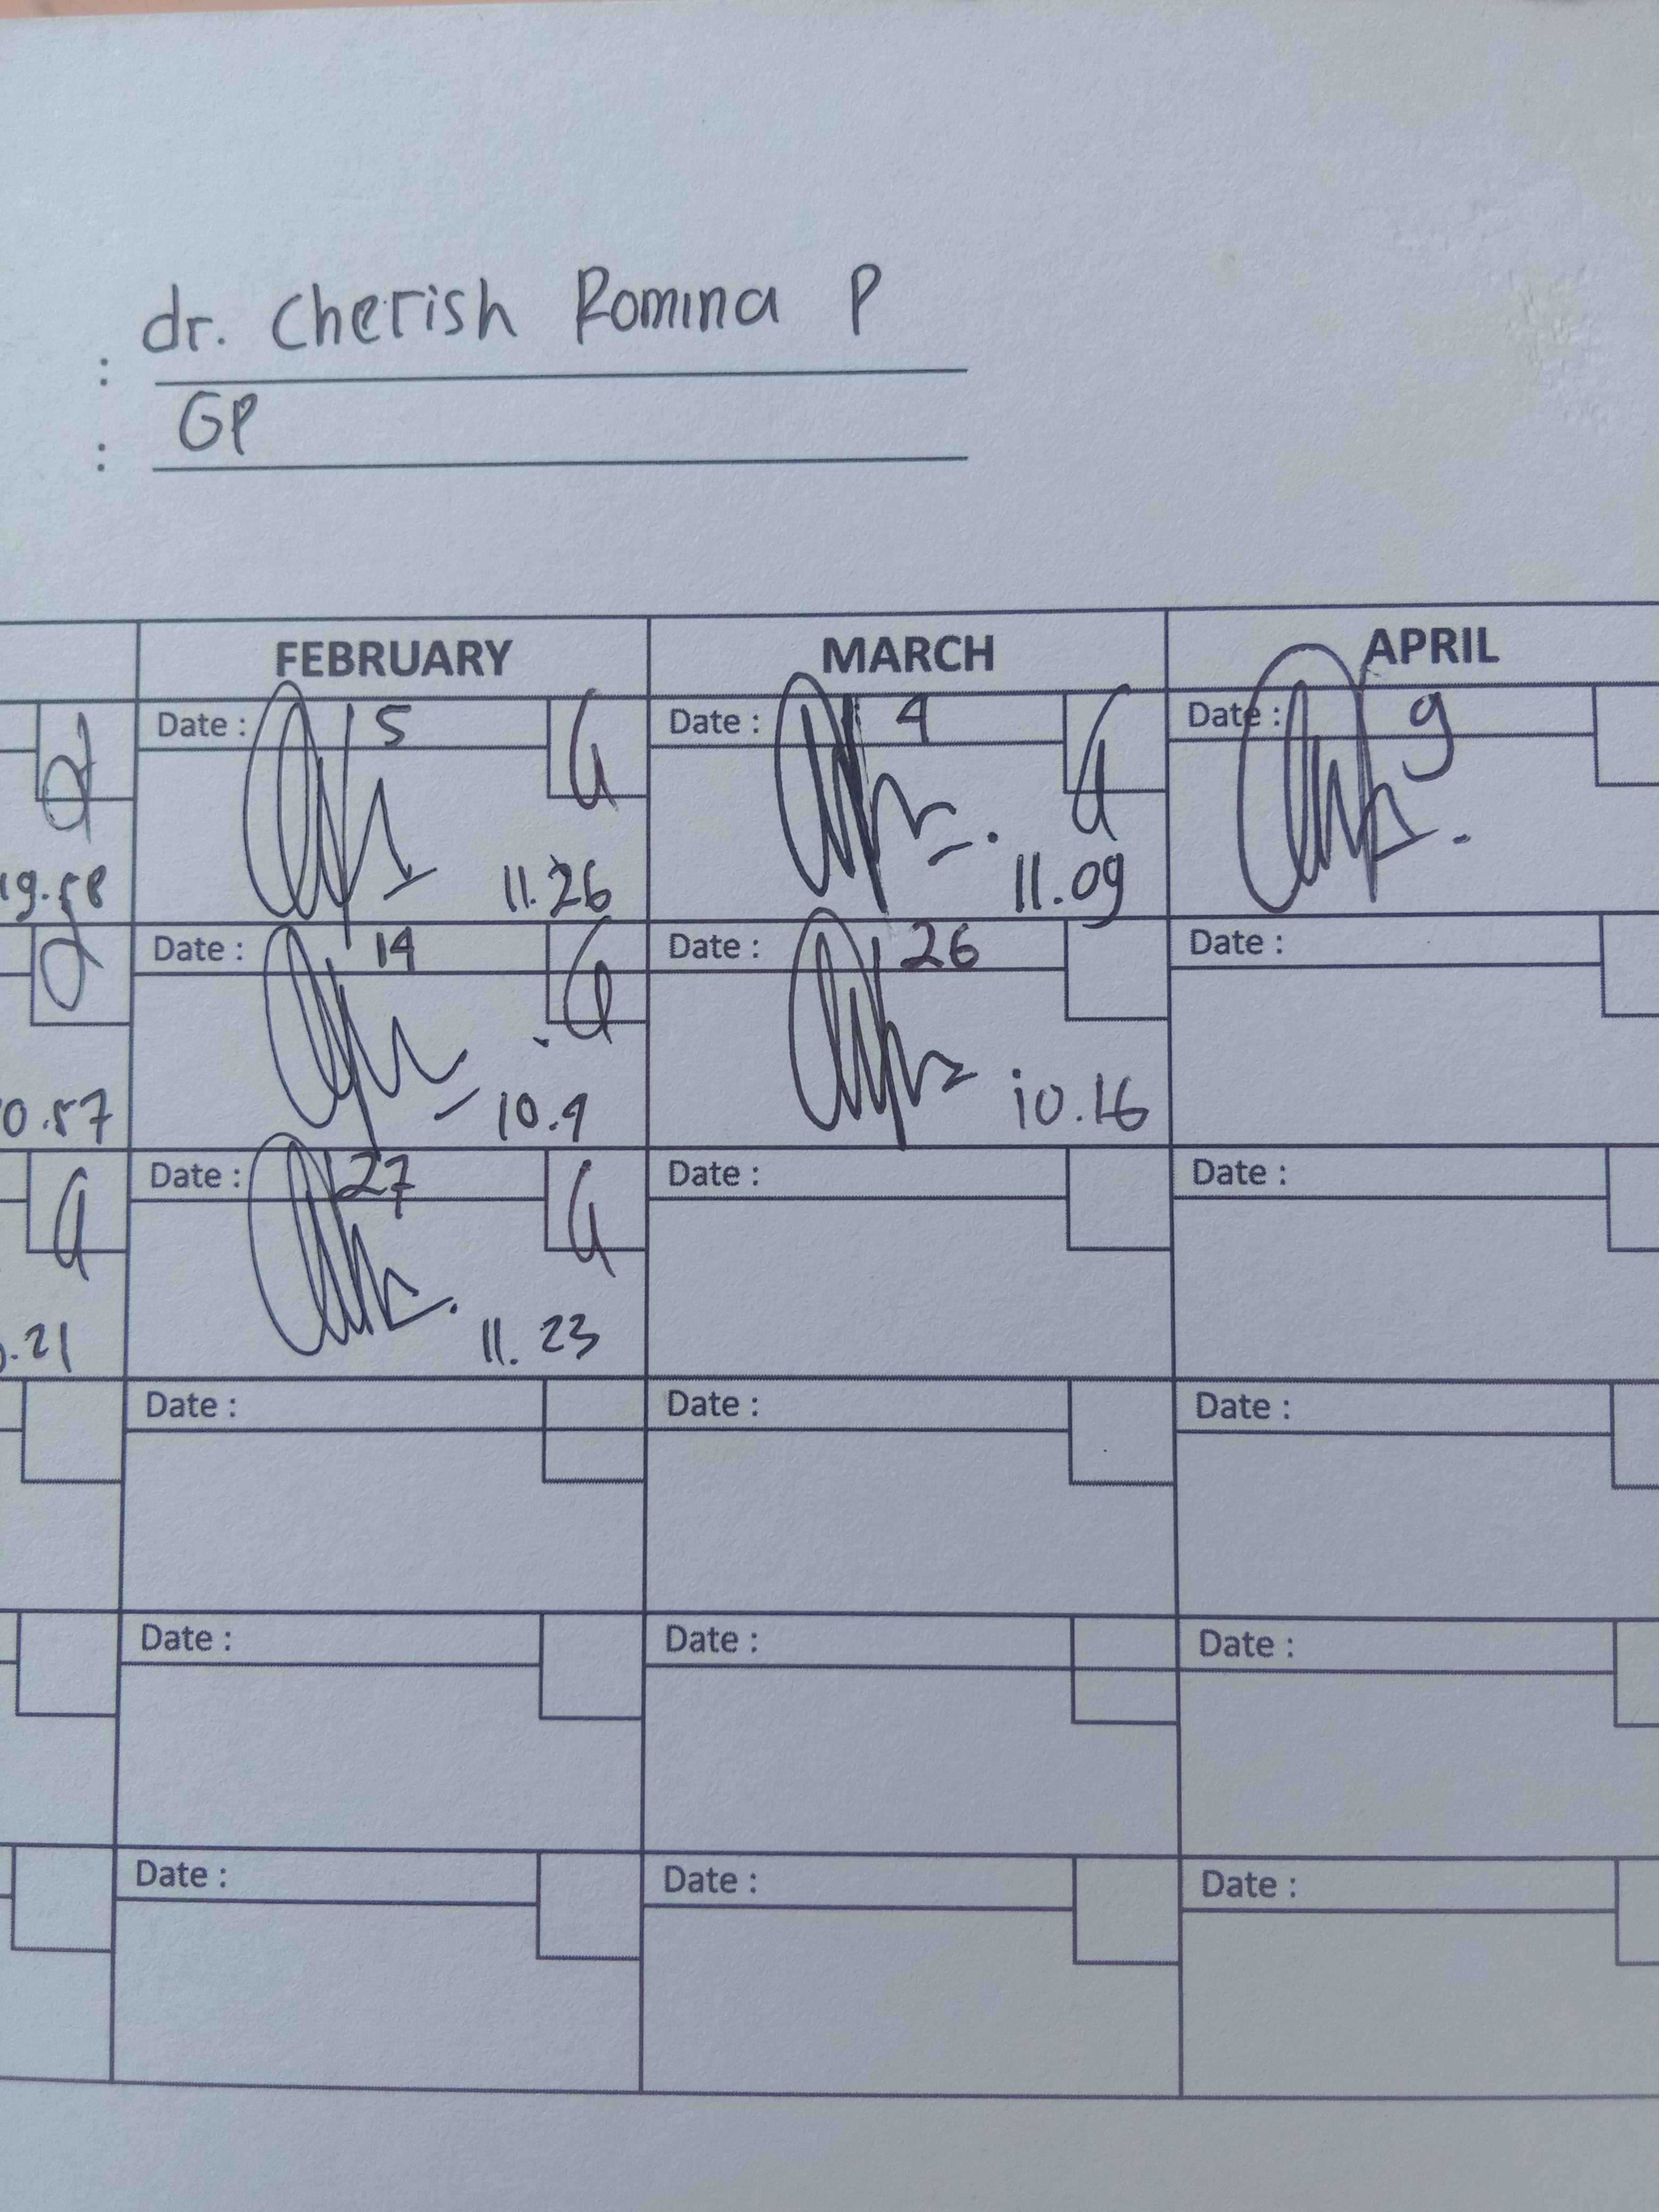 : dr. Cherish Romina P
: GP
FEBRUARY MARCH APRIL
Date : 5 Date : 4 Date : 9
19.58 11.26 11.09
Date : 14 Date : 26 Date :
0.57 10.9 10.16
Date : 27 Date : Date :
.21 11.23
Date : Date : Date :
Date : Date : Date :
Date : Date : Date :